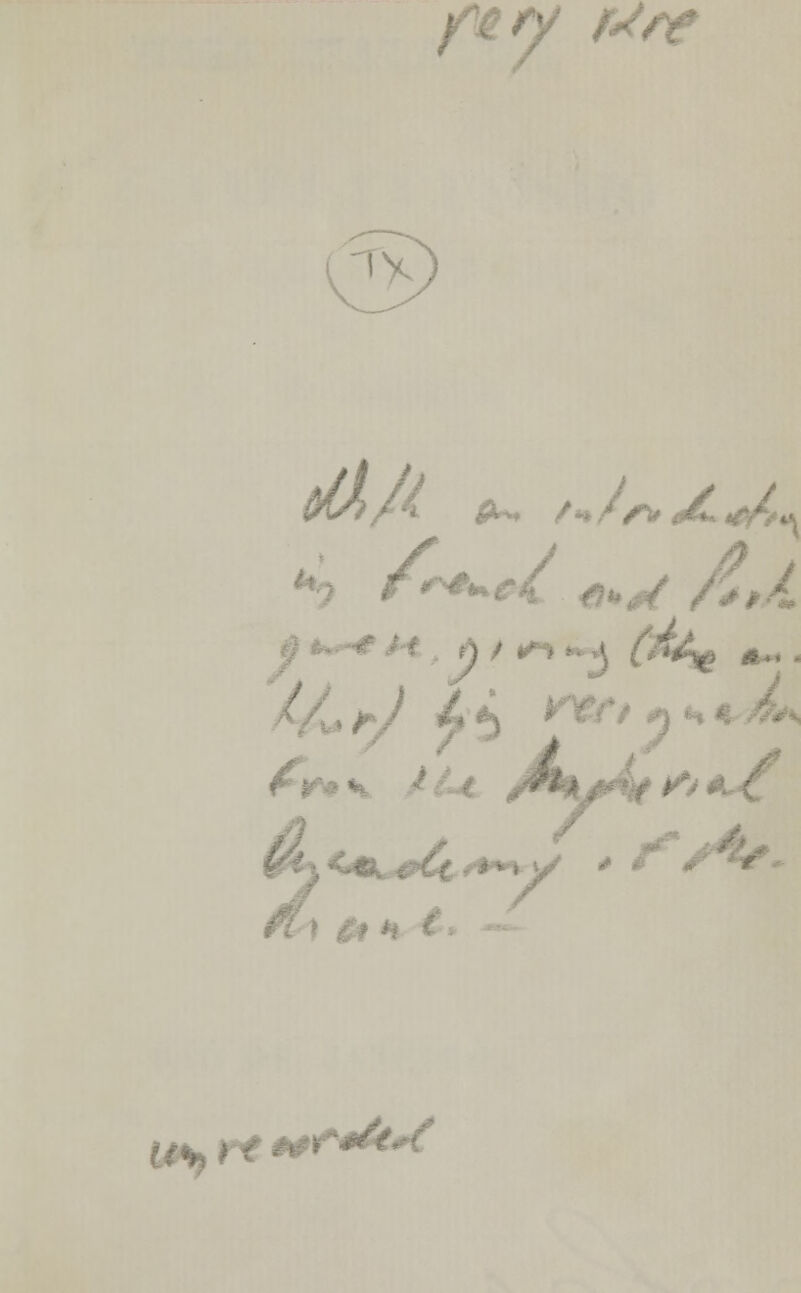 very rare
TX
With an introduction
in French and Portu
guese, giving (the au-
thor) his resignation
from the Imperial
Academy of Me-
dicine. —
unrecorded